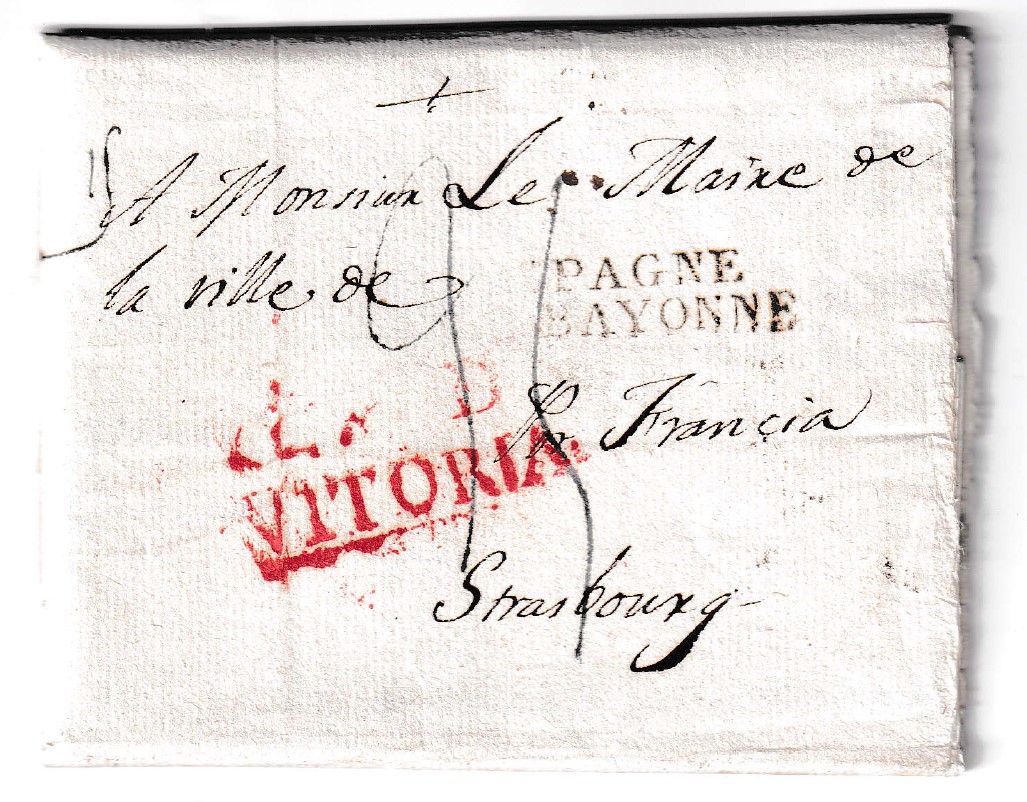 A Monsiur Le Maire de
la ville de
PAGNE
BAYONNE
B
VITORIA
Pr Francia
Strasbourg